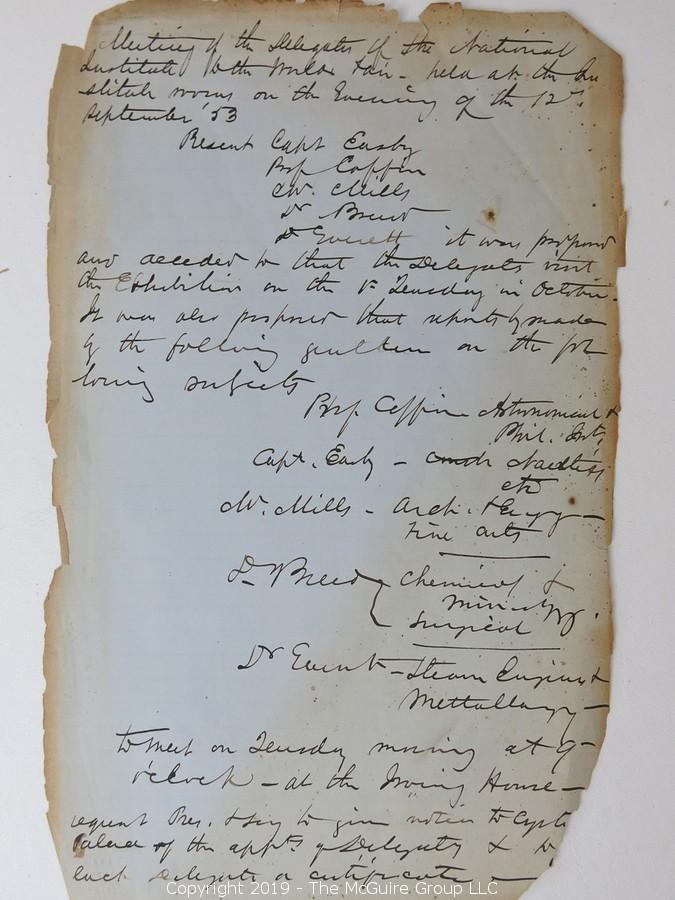 Meeting of the Delegates of the National
Institute to the Worlds Fair - held at the In
stitute rooms on the Evening of the 12th
September '53
Present Capt Easby
Prof Coffin
Mr. Mills
Dr Breed
Dr Everett it was proposed
and acceded to that the Delegates visit
the Exhibition on the 1st Tuesday in October.
It was also proposed that reports be made
by the following gentlemen on the fol
lowing subjects
Prof. Coffin Astronomical &
Phil. Insts
Capt. Easby - Nautical
etc
Mr. Mills - Arch. & Engg -
Fine arts
Dr Breed Chemical &
Mineralogy.
Surgical
Dr Everett - Steam Engines &
Mettallurgy -
to meet on Tuesday morning at 9 -
o'clock - at the Irving House -
request Pres. & Secy to give notice to Crystal
Palace of the appts of Delegates & to
each Delegate a certificate -
Copyright 2019 - The McGuire Group LLC